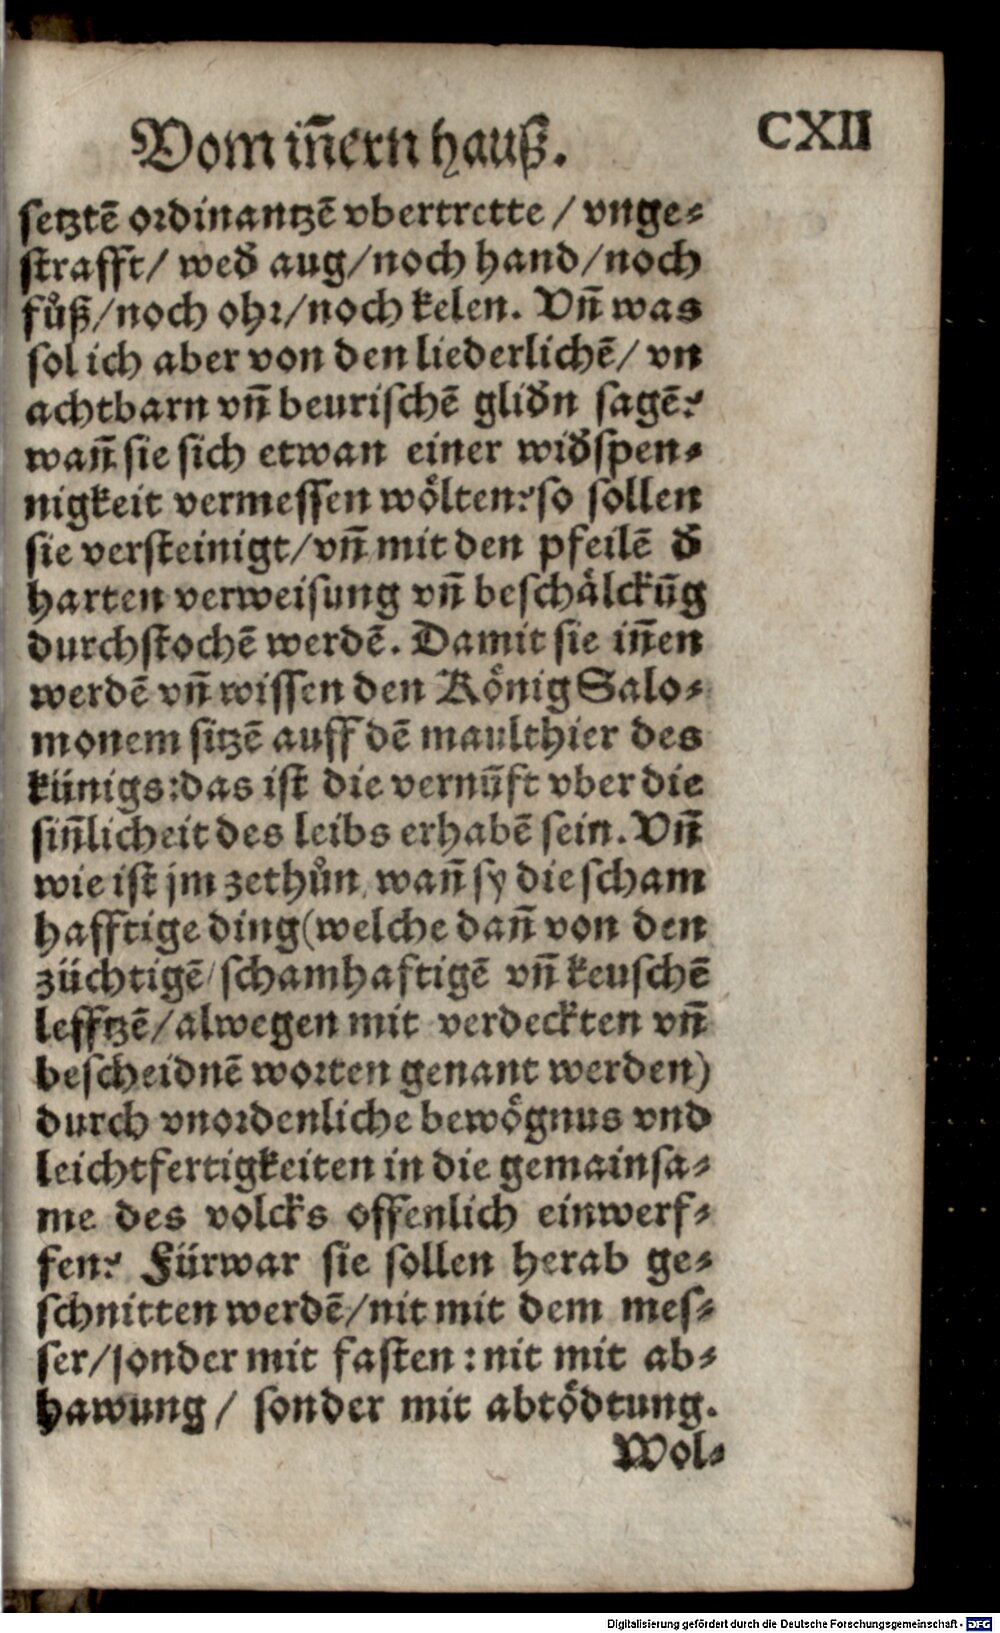 Vom iñern hauß.
CXII
setztē ordinantzē vbertrette / vnge⸗
strafft / wed̄ aug / noch hand / noch
fůß / noch ohr / noch kelen. Vñ was
sol ich aber von den liederlichē / vn
achtbarn vñ beurischē glid̄n sagē?
wañ sie sich etwan einer wid̄spen⸗
nigkeit vermessen wölten? so sollen
sie versteinigt / vñ mit den pfeilē d̄
harten verweisung vñ beschälckūg
durchstochē werdē. Damit sie iñen
werdē vñ wissen den König Salo⸗
monem sitzē auff dē maulthier des
künigs: das ist die vernūft vber die
siñlicheit des leibs erhabē sein. Vñ
wie ist jm zethůn, wañ sy die scham
hafftige ding (welche dañ von den
züchtigē / schamhaftigē vñ keuschē
lefftzē / alwegen mit verdeckten vñ
bescheidnē worten genant werden)
durch vnordenliche bewögnus vnd
leichtfertigkeiten in die gemainsa⸗
me des volcks offenlich einwerf⸗
fen? Fürwar sie sollen herab ge⸗
schnitten werdē / nit mit dem mes⸗
ser / sonder mit fasten: nit mit ab⸗
hawung / sonder mit abtödtung.
Wol⸗
Digitalisierung gefördert durch die Deutsche Forschungsgemeinschaft - DFG